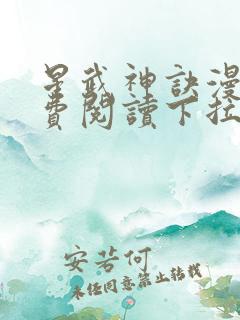 星武神訣漫
費閱讀下拉
安若何
未经同意禁止转载